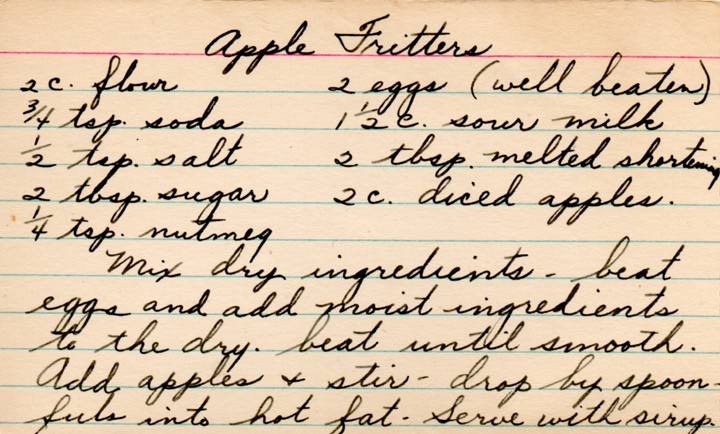 Apple Fritters
2 c. flour 2 eggs (well beaten)
3/4 tsp. soda 1 1/2 c. sour milk
1/2 tsp. salt 2 tbsp. melted shortening
2 tbsp. sugar 2 c. diced apples.
1/4 tsp. nutmeg
Mix dry ingredients - beat
eggs and add moist ingredients
to the dry. beat until smooth.
Add apples & stir - drop by spoon-
fuls into hot fat - Serve with sirup.